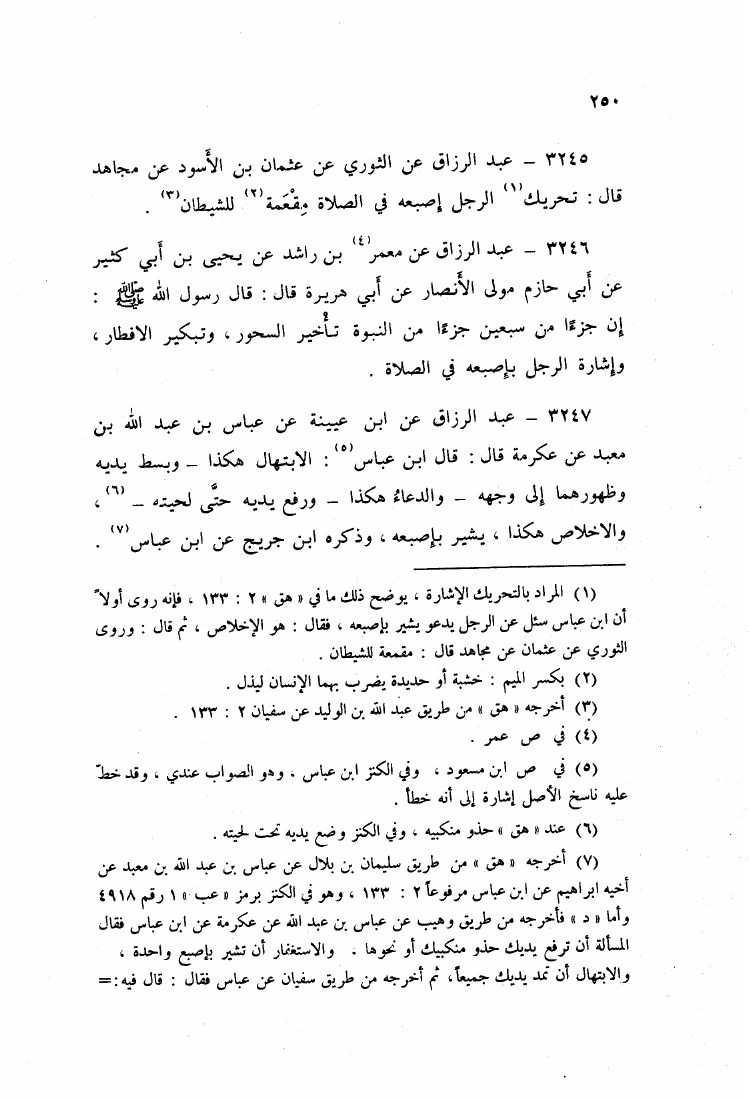 ٢٥٠
٣٢٤٥ – عبد الرزاق عن الثوري عن عثمان بن الأَسود عن مجاهد
قال : تحريك(١) الرجل إصبعه في الصلاة مِقْعَمة(٢) للشيطان(٣) .
٣٢٤٦ – عبد الرزاق عن معمر(٤) بن راشد عن يحيى بن أَبي كثير
عن أَبي حازم مولى الأَنصار عن أَبي هريرة قال : قال رسول الله ﷺ :
إن جزءًا من سبعين جزءًا من النبوة تأْخير السحور ، وتبكير الافطار ،
وإشارة الرجل بإصبعه في الصلاة .
٣٢٤٧ – عبد الرزاق عن ابن عيينة عن عباس بن عبد الله بن
معبد عن عكرمة قال : قال ابن عباس(٥) : الابتهال هكذا – وبسط يديه
وظهورهما إلى وجهه – والدعاءُ هكذا – ورفع يديه حتَّى لحيته –(٦) ،
والاخلاص هكذا ، يشير بإصبعه ، وذكره ابن جريج عن ابن عباس(٧) .
(١) المراد بالتحريك الإشارة ، يوضح ذلك ما في « هق » ٢ : ١٣٣ ، فإنه روى أولاً
أن ابن عباس سئل عن الرجل يدعو يشير بإصبعه ، فقال : هو الإخلاص ، ثم قال : وروى
الثوري عن عثمان عن مجاهد قال : مقمعة للشيطان .
(٢) بكسر الميم : خشبة أو حديدة يضرب بهما الإنسان ليذل .
(٣) أخرجه « هق » من طريق عبد الله بن الوليد عن سفيان ٢ : ١٣٣ .
(٤) في ص عمر .
(٥) في ص ابن مسعود ، وفي الكنز ابن عباس ، وهو الصواب عندي ، وقد خطّ
عليه ناسخ الأصل إشارة إلى أنه خطأ .
(٦) عند « هق » حذو منكبيه ، وفي الكنز وضع يديه تحت لحيته .
(٧) أخرجه « هق » من طريق سليمان بن بلال عن عباس بن عبد الله بن معبد عن
أخيه ابراهيم عن ابن عباس مرفوعاً ٢ : ١٣٣ ، وهو في الكنز برمز « عب » ١ رقم ٤٩١٨
وأما « د » فأخرجه من طريق وهيب عن عباس بن عبد الله عن عكرمة عن ابن عباس فقال
المسألة أن ترفع يديك حذو منكبيك أو نحوها . والاستغفار أن تشير بإصبع واحدة ،
والابتهال أن تمد يديك جميعاً، ثم أخرجه من طريق سفيان عن عباس فقال : قال فيه :=